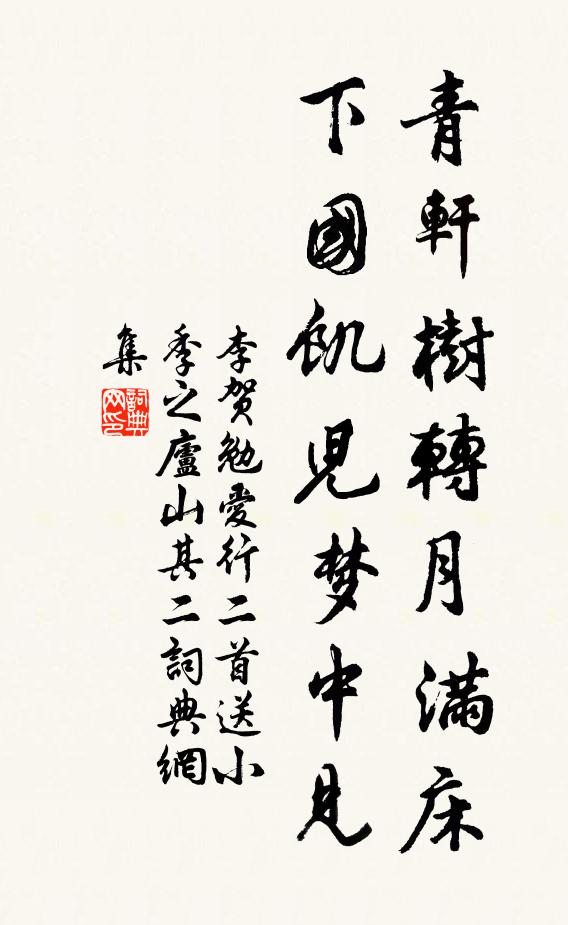 青軒樹轉月滿床
下國飢児梦中見
李贺勉愛行二首送小
季之廬山其二詞典網
集
詞典
网印